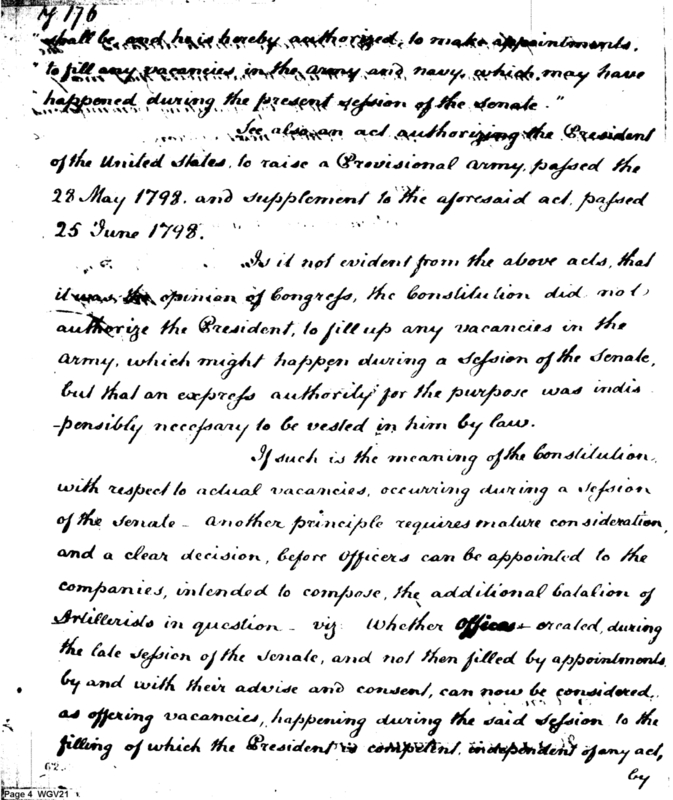 M 176
"shall be and he is hereby authorized, to make appointments,
"to fill any vacancies, in the army and navy, which may have
"happened during the present session of the senate."
See also an act authorizing the President
of the United States, to raise a Provisional army, passed the
28 May 1798. and supplement to the aforesaid act, passed
25 June 1798.
Is it not evident from the above acts, that
it was the opinion of Congress, the Constitution did not
authorize the President, to fill up any vacancies in the
army, which might happen during a session of the Senate,
but that an express authority for the purpose was indis
-pensibly necessary to be vested in him by law.
If such is the meaning of the Constitution,
with respect to actual vacancies, occurring during a session
of the senate - another principle requires mature consideration,
and a clear decision, before officers can be appointed to the
companies, intended to compose, the additional batalion of
Artillerists in question - viz. Whether offices created, during
the late session of the Senate, and not then filled by appointments,
by and with their advise and consent, can now be considered,
as offering vacancies, happening during the said session to the
filling of which the President is competent, independent of any act,
62.
by
Page 4 WGV21 x